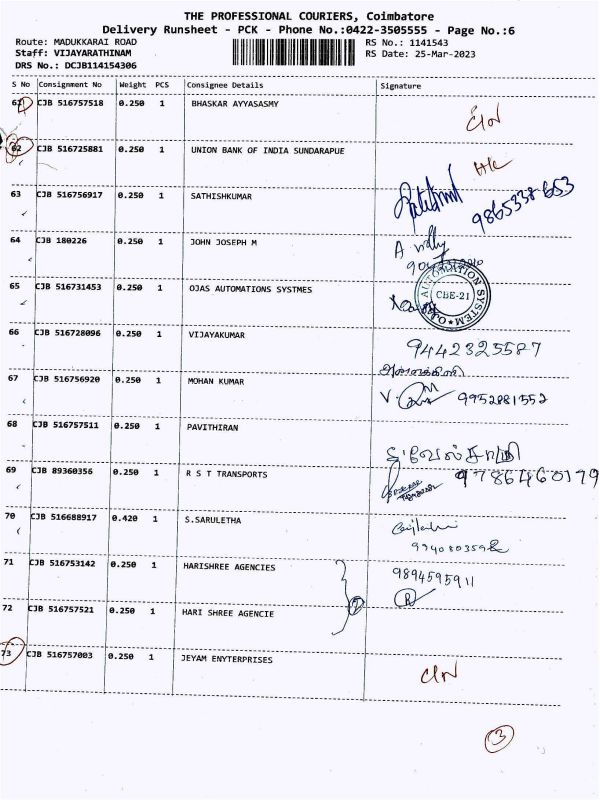 THE PROFESSIONAL COURIERS, Coimbatore
Delivery Runsheet - PCK - Phone No.:0422-3505555 - Page No.:6
Route: MADUKKARAI ROAD RS No.: 1141543
Staff: VIJAYARATHINAM RS Date: 25-Mar-2023
DRS No.: DCJB114154306
S No Consignment No Weight PCS Consignee Details Signature
61 CJB 516757518 0.250 1 BHASKAR AYYASASMY
62 CJB 516725881 0.250 1 UNION BANK OF INDIA SUNDARAPUE
63 CJB 516756917 0.250 1 SATHISHKUMAR
9865338653
64 CJB 180226 0.250 1 JOHN JOSEPH M
65 CJB 516731453 0.250 1 OJAS AUTOMATIONS SYSTMES
CBE-21
66 CJB 516728096 0.250 1 VIJAYAKUMAR
9442325587
67 CJB 516756920 0.250 1 MOHAN KUMAR
9952881552
68 CJB 516757511 0.250 1 PAVITHIRAN
69 CJB 89360356 0.250 1 R S T TRANSPORTS
9786460179
70 CJB 516688917 0.420 1 S.SARULETHA
71 CJB 516753142 0.250 1 HARISHREE AGENCIES
9894595911
R
72 CJB 516757521 0.250 1 HARI SHREE AGENCIE
73 CJB 516757003 0.250 1 JEYAM ENYTERPRISES
3